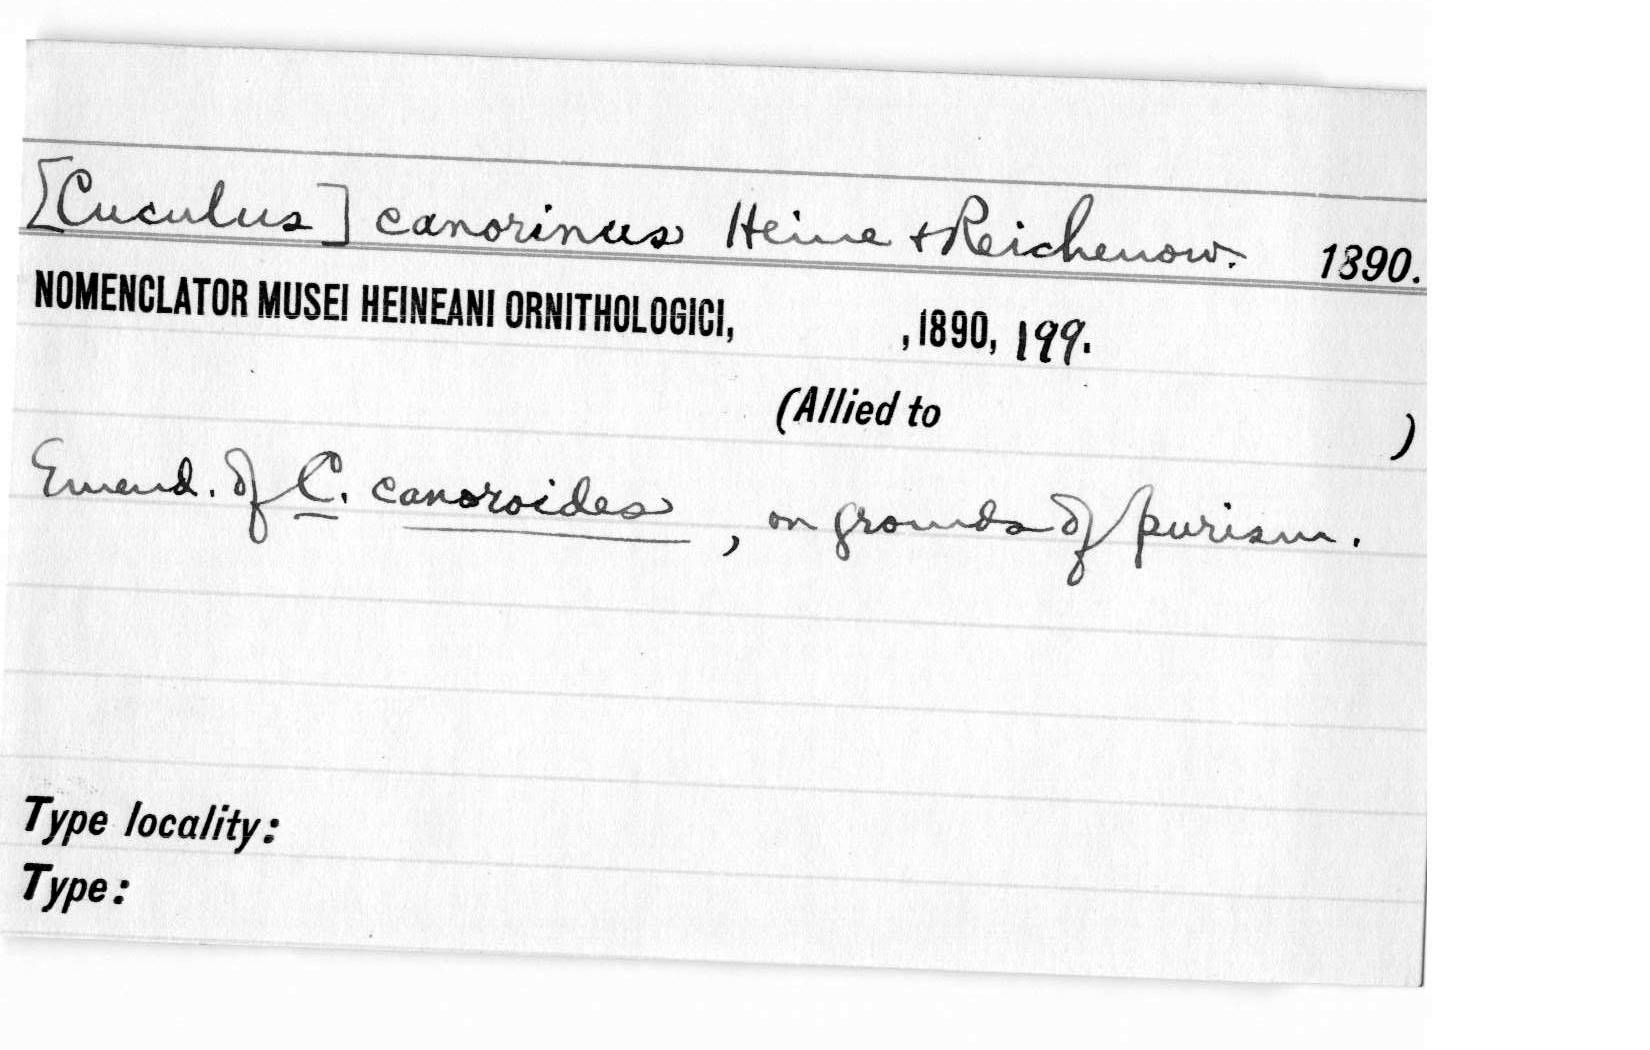 [Cuculus] canorinus Heine + Reichenow. 1890.
NOMENCLATOR MUSEI HEINEANI ORNITHOLOGICI, , 1890, 199.
(Allied to )
Emend. of C. canoroides, on grounds of purism.
Type locality:
Type: